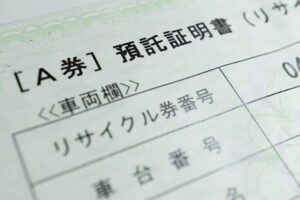 [A券] 預託証明書 (リサ
<<車両欄>>
リサイクル券番号 04
車台番号
名